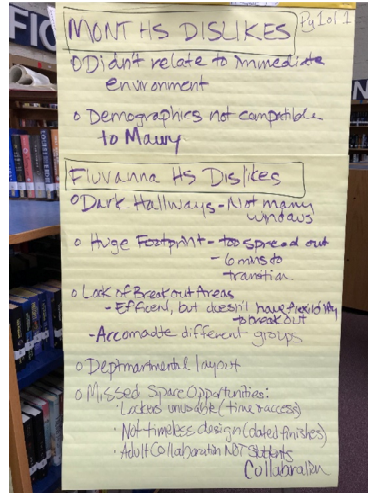 FIC
MONT HS DISLIKES
Pg 1 of 1
o Didn't relate to immediate
environment
o Demographics not compatible
to Maury
Fluvanna HS Dislikes
o Dark Hallways - Not many
windows
o Huge Footprint - too spread out
- 6 mins to
transition
o Lack of Breakout Areas
- Efficent, but doesn't have flexibility
to break out
- Accomodte different groups
o Deptmartmental layout
o Missed Space Opportunities:
· Lockers unusable (time & access)
· Not timeless design (dated finishes)
· Adult Collaboration NOT Students
Collaboration